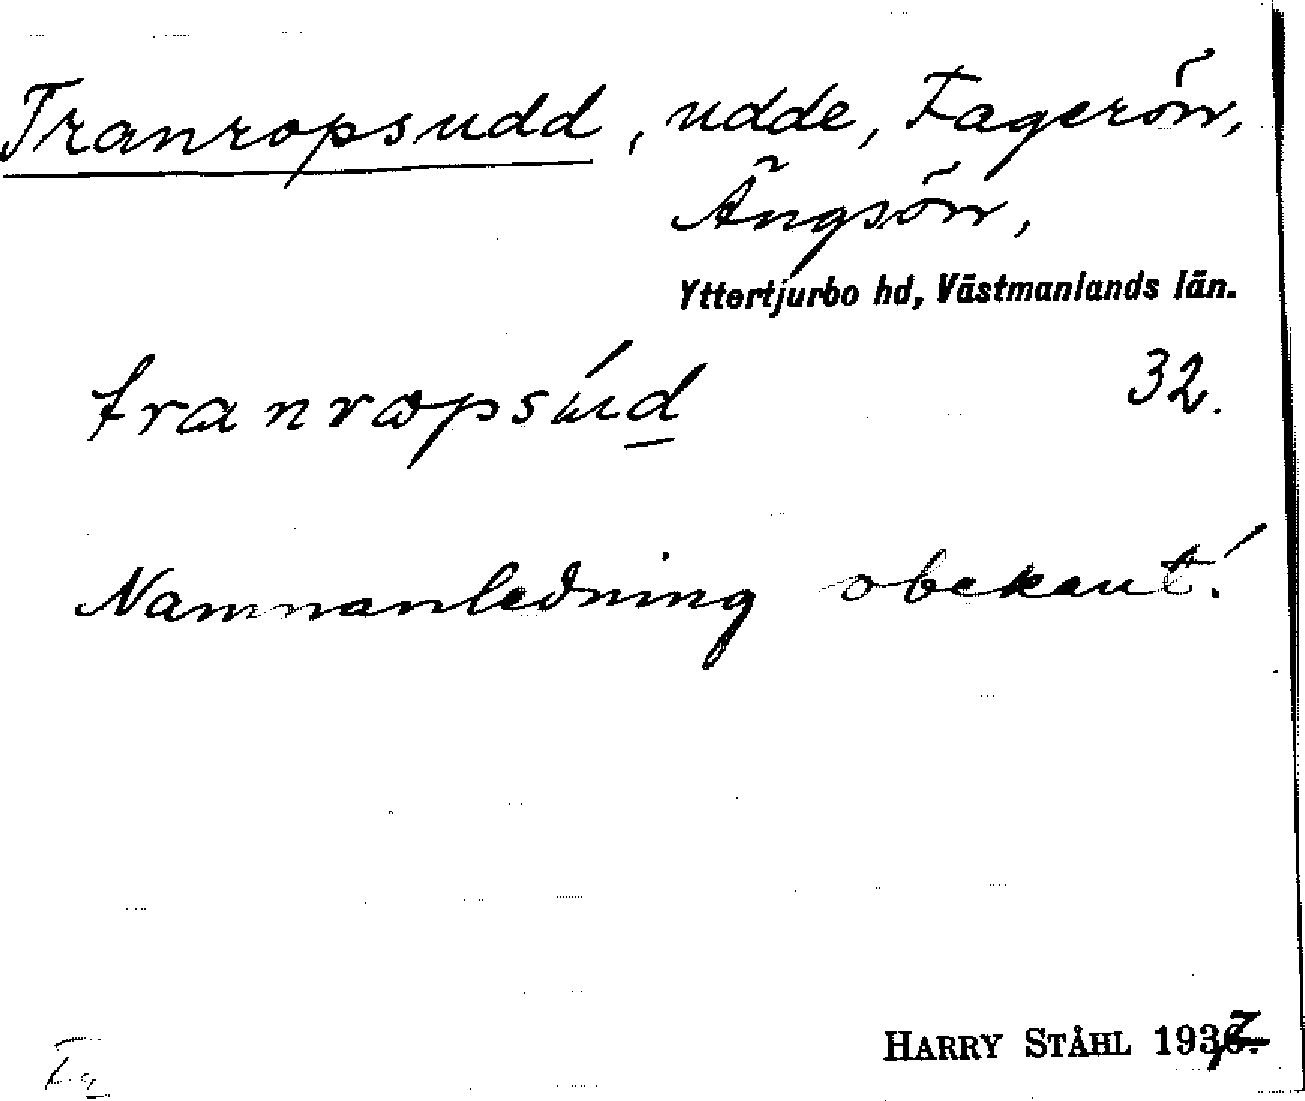 Tranropsudd, udde, Fagerön,
Ängsön,
Yttertjurbo hd, Västmanlands län.
tranropsúd 32.
Namnanledning obekant!
HARRY STÅHL 1937.